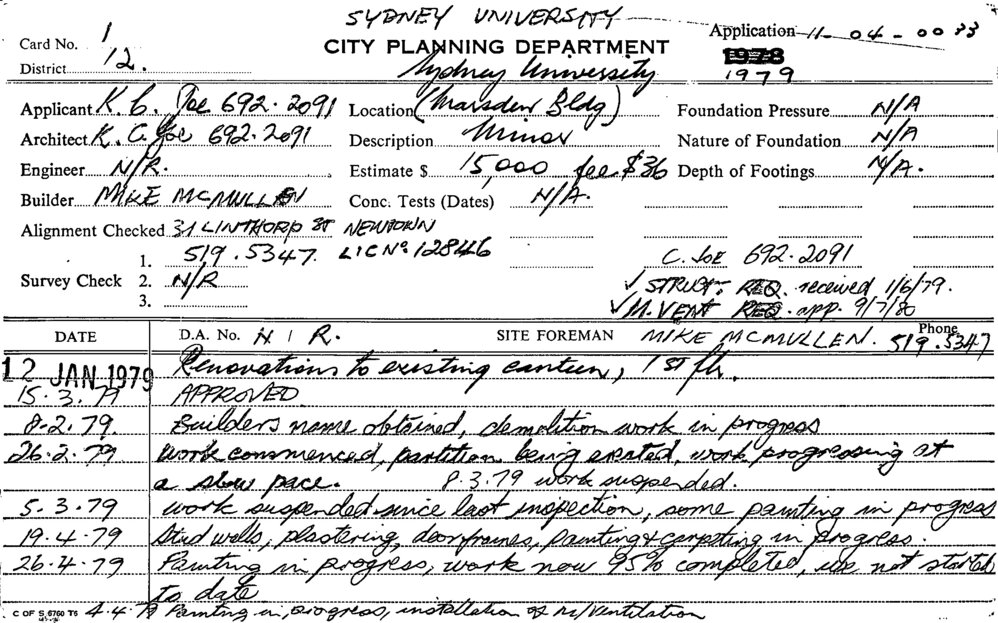 SYDNEY UNIVERSITY
Card No. 1
CITY PLANNING DEPARTMENT
Application 11-04-0033
District 12.
Sydney University
1978
1979
Applicant K.C. Joe 692.2091
Location (Marsden Bldg)
Foundation Pressure N/A
Architect K.C. Joe 692.2091
Description Minor
Nature of Foundation N/A
Engineer N/R.
Estimate $ 15,000 fee $36
Depth of Footings N/A.
Builder MIKE MCMULLEN
Conc. Tests (Dates) N/A.
Alignment Checked 31 LINTHORP ST NEWTOWN
1. 519.5347. LIC No. 12846
C. JOE 692.2091
Survey Check 2. N/R
✓ STRUCT. REQ. received 1/6/79.
3.
✓ M. VENT REQ. app. 9/7/80
DATE
D.A. No. N / R.
SITE FOREMAN MIKE MCMULLEN. Phone 519.5347
12 JAN 1979 Renovations to existing canteen, 1st flr.
15.3.79 APPROVED
8.2.79. Builders name obtained, demolition work in progress
26.2.79 Work commenced, partition being erected, work progressing at
a slow pace. 8.3.79 work suspended.
5.3.79 work suspended since last inspection, some painting in progress
19.4.79 Stud walls, plastering, doorframes, painting & carpeting in progress.
26.4.79 Painting in progress, work now 95% completed, use not started
to date
C OF S 6760 T6 4.4.79 Painting in progress, installation of m/ventilation